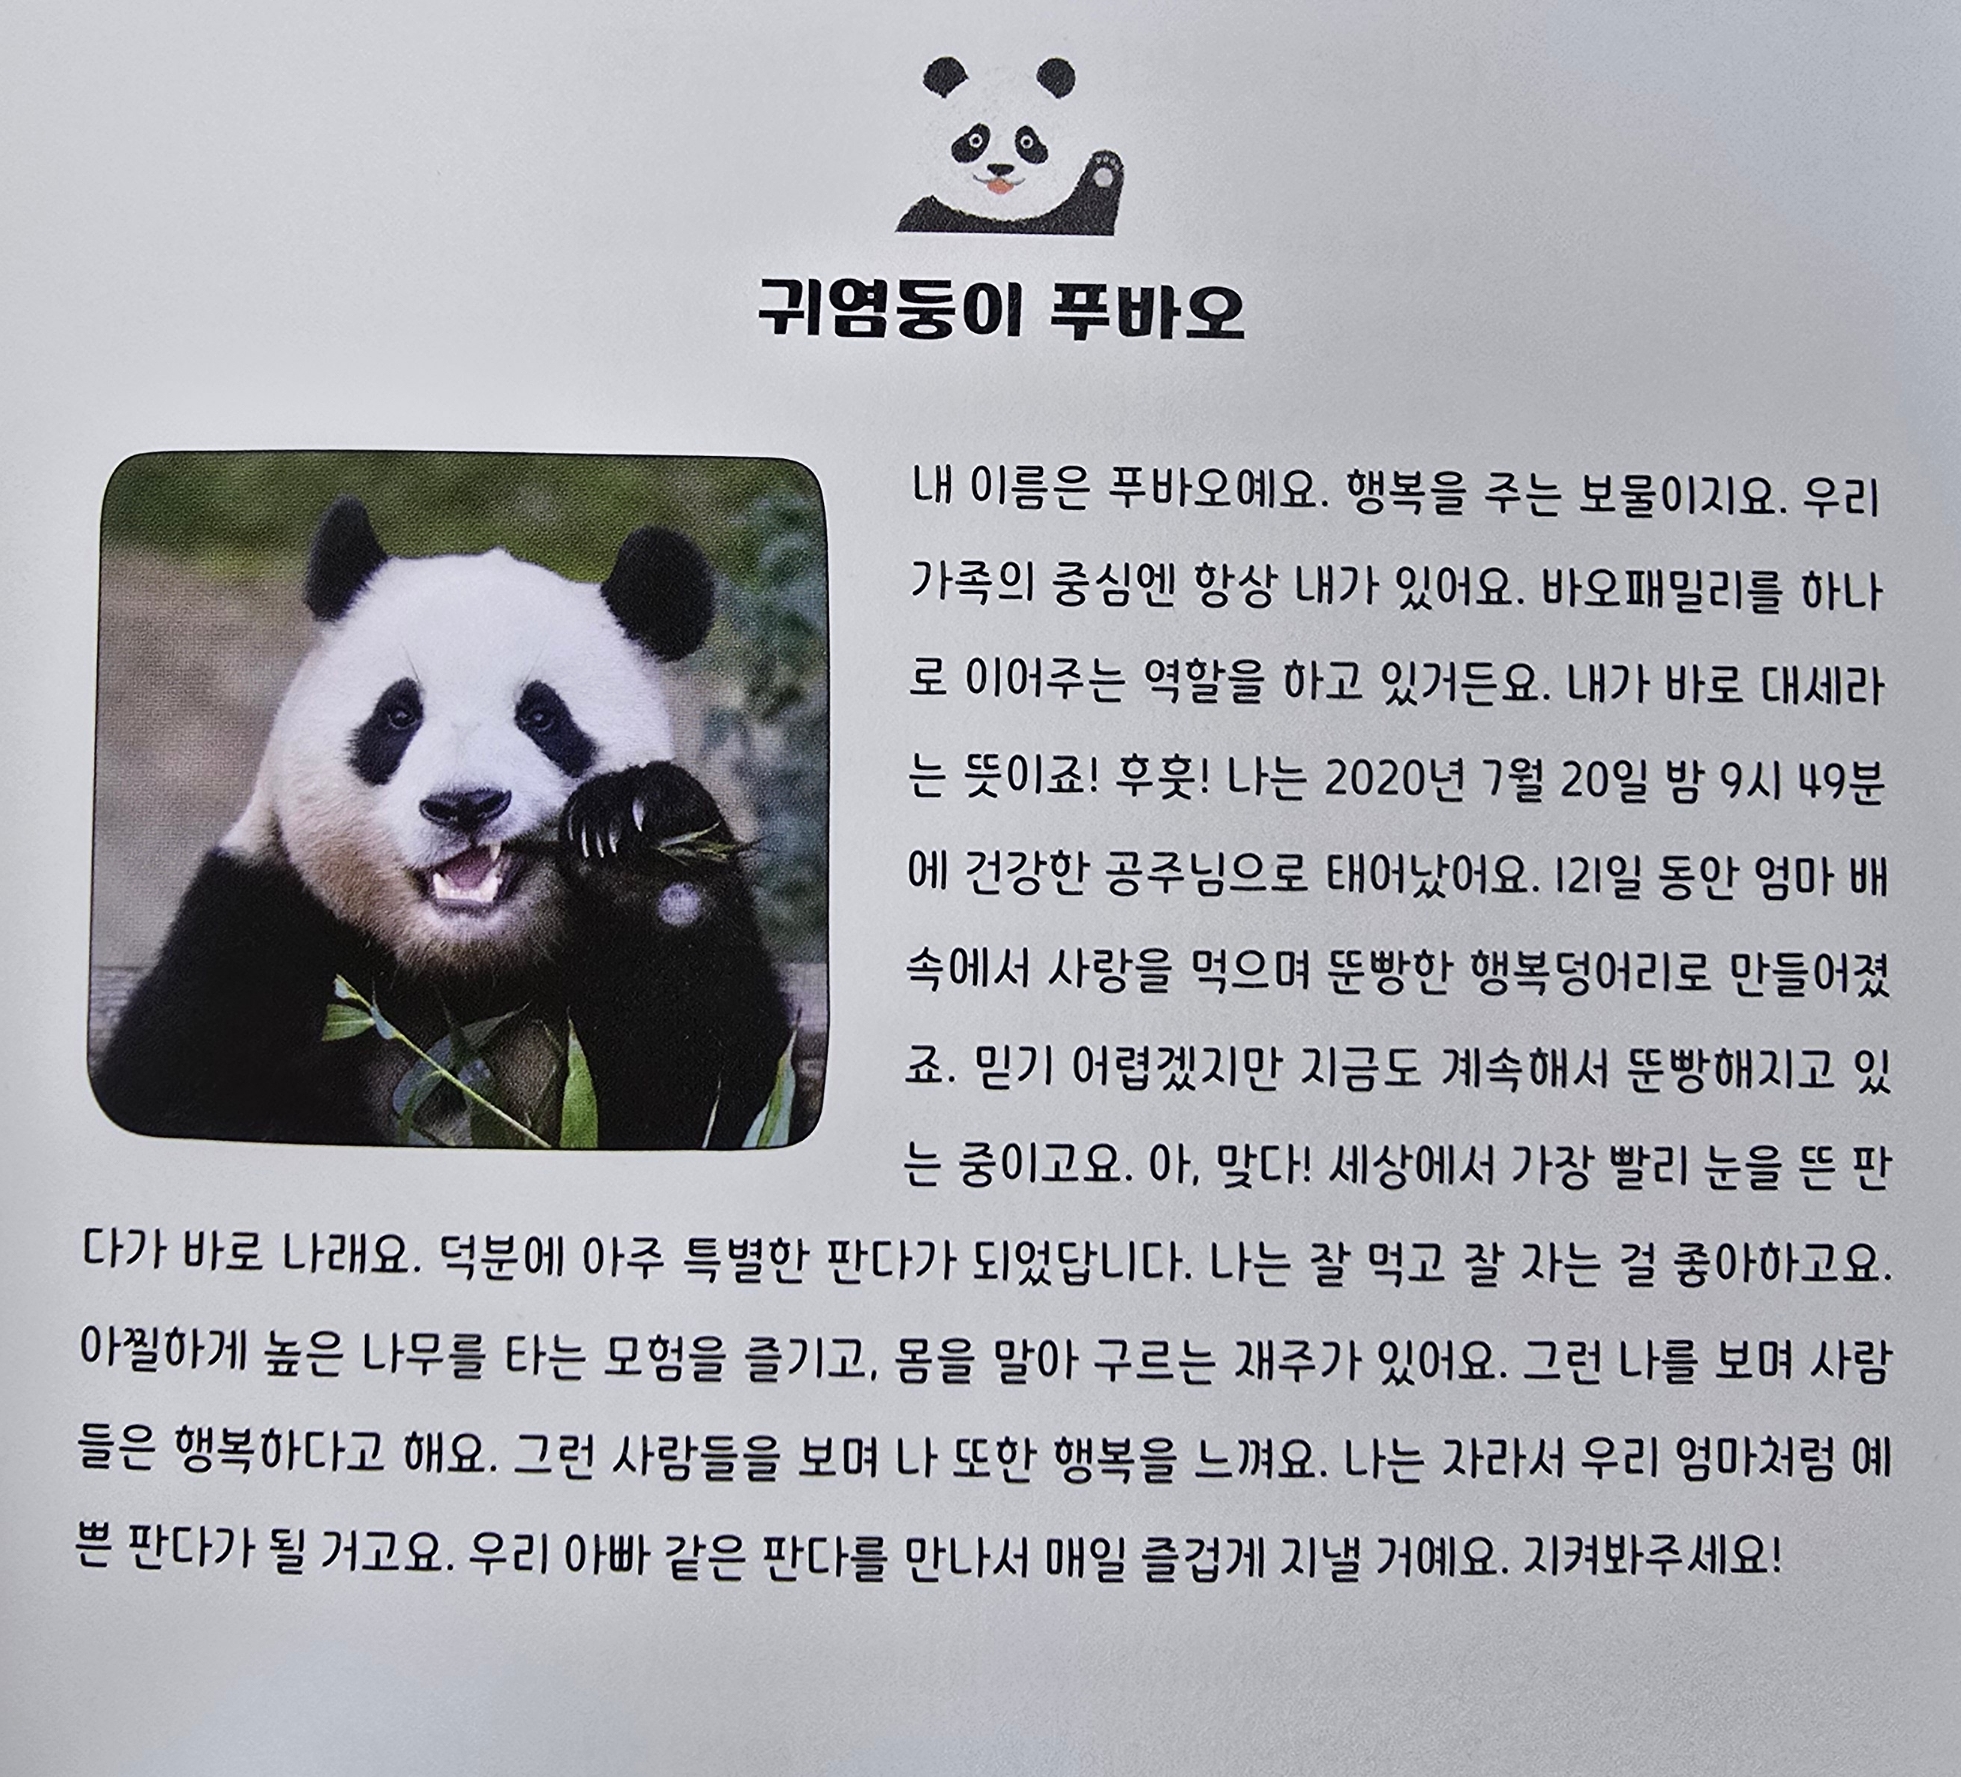 귀염둥이 푸바오
내 이름은 푸바오예요. 행복을 주는 보물이지요. 우리
가족의 중심엔 항상 내가 있어요. 바오패밀리를 하나
로 이어주는 역할을 하고 있거든요. 내가 바로 대세라
는 뜻이죠! 후훗! 나는 2020년 7월 20일 밤 9시 49분
에 건강한 공주님으로 태어났어요. 121일 동안 엄마 배
속에서 사랑을 먹으며 뚠빵한 행복덩어리로 만들어졌
죠. 믿기 어렵겠지만 지금도 계속해서 뚠빵해지고 있
는 중이고요. 아, 맞다! 세상에서 가장 빨리 눈을 뜬 판
다가 바로 나래요. 덕분에 아주 특별한 판다가 되었답니다. 나는 잘 먹고 잘 자는 걸 좋아하고요.
아찔하게 높은 나무를 타는 모험을 즐기고, 몸을 말아 구르는 재주가 있어요. 그런 나를 보며 사람
들은 행복하다고 해요. 그런 사람들을 보며 나 또한 행복을 느껴요. 나는 자라서 우리 엄마처럼 예
쁜 판다가 될 거고요. 우리 아빠 같은 판다를 만나서 매일 즐겁게 지낼 거예요. 지켜봐주세요!